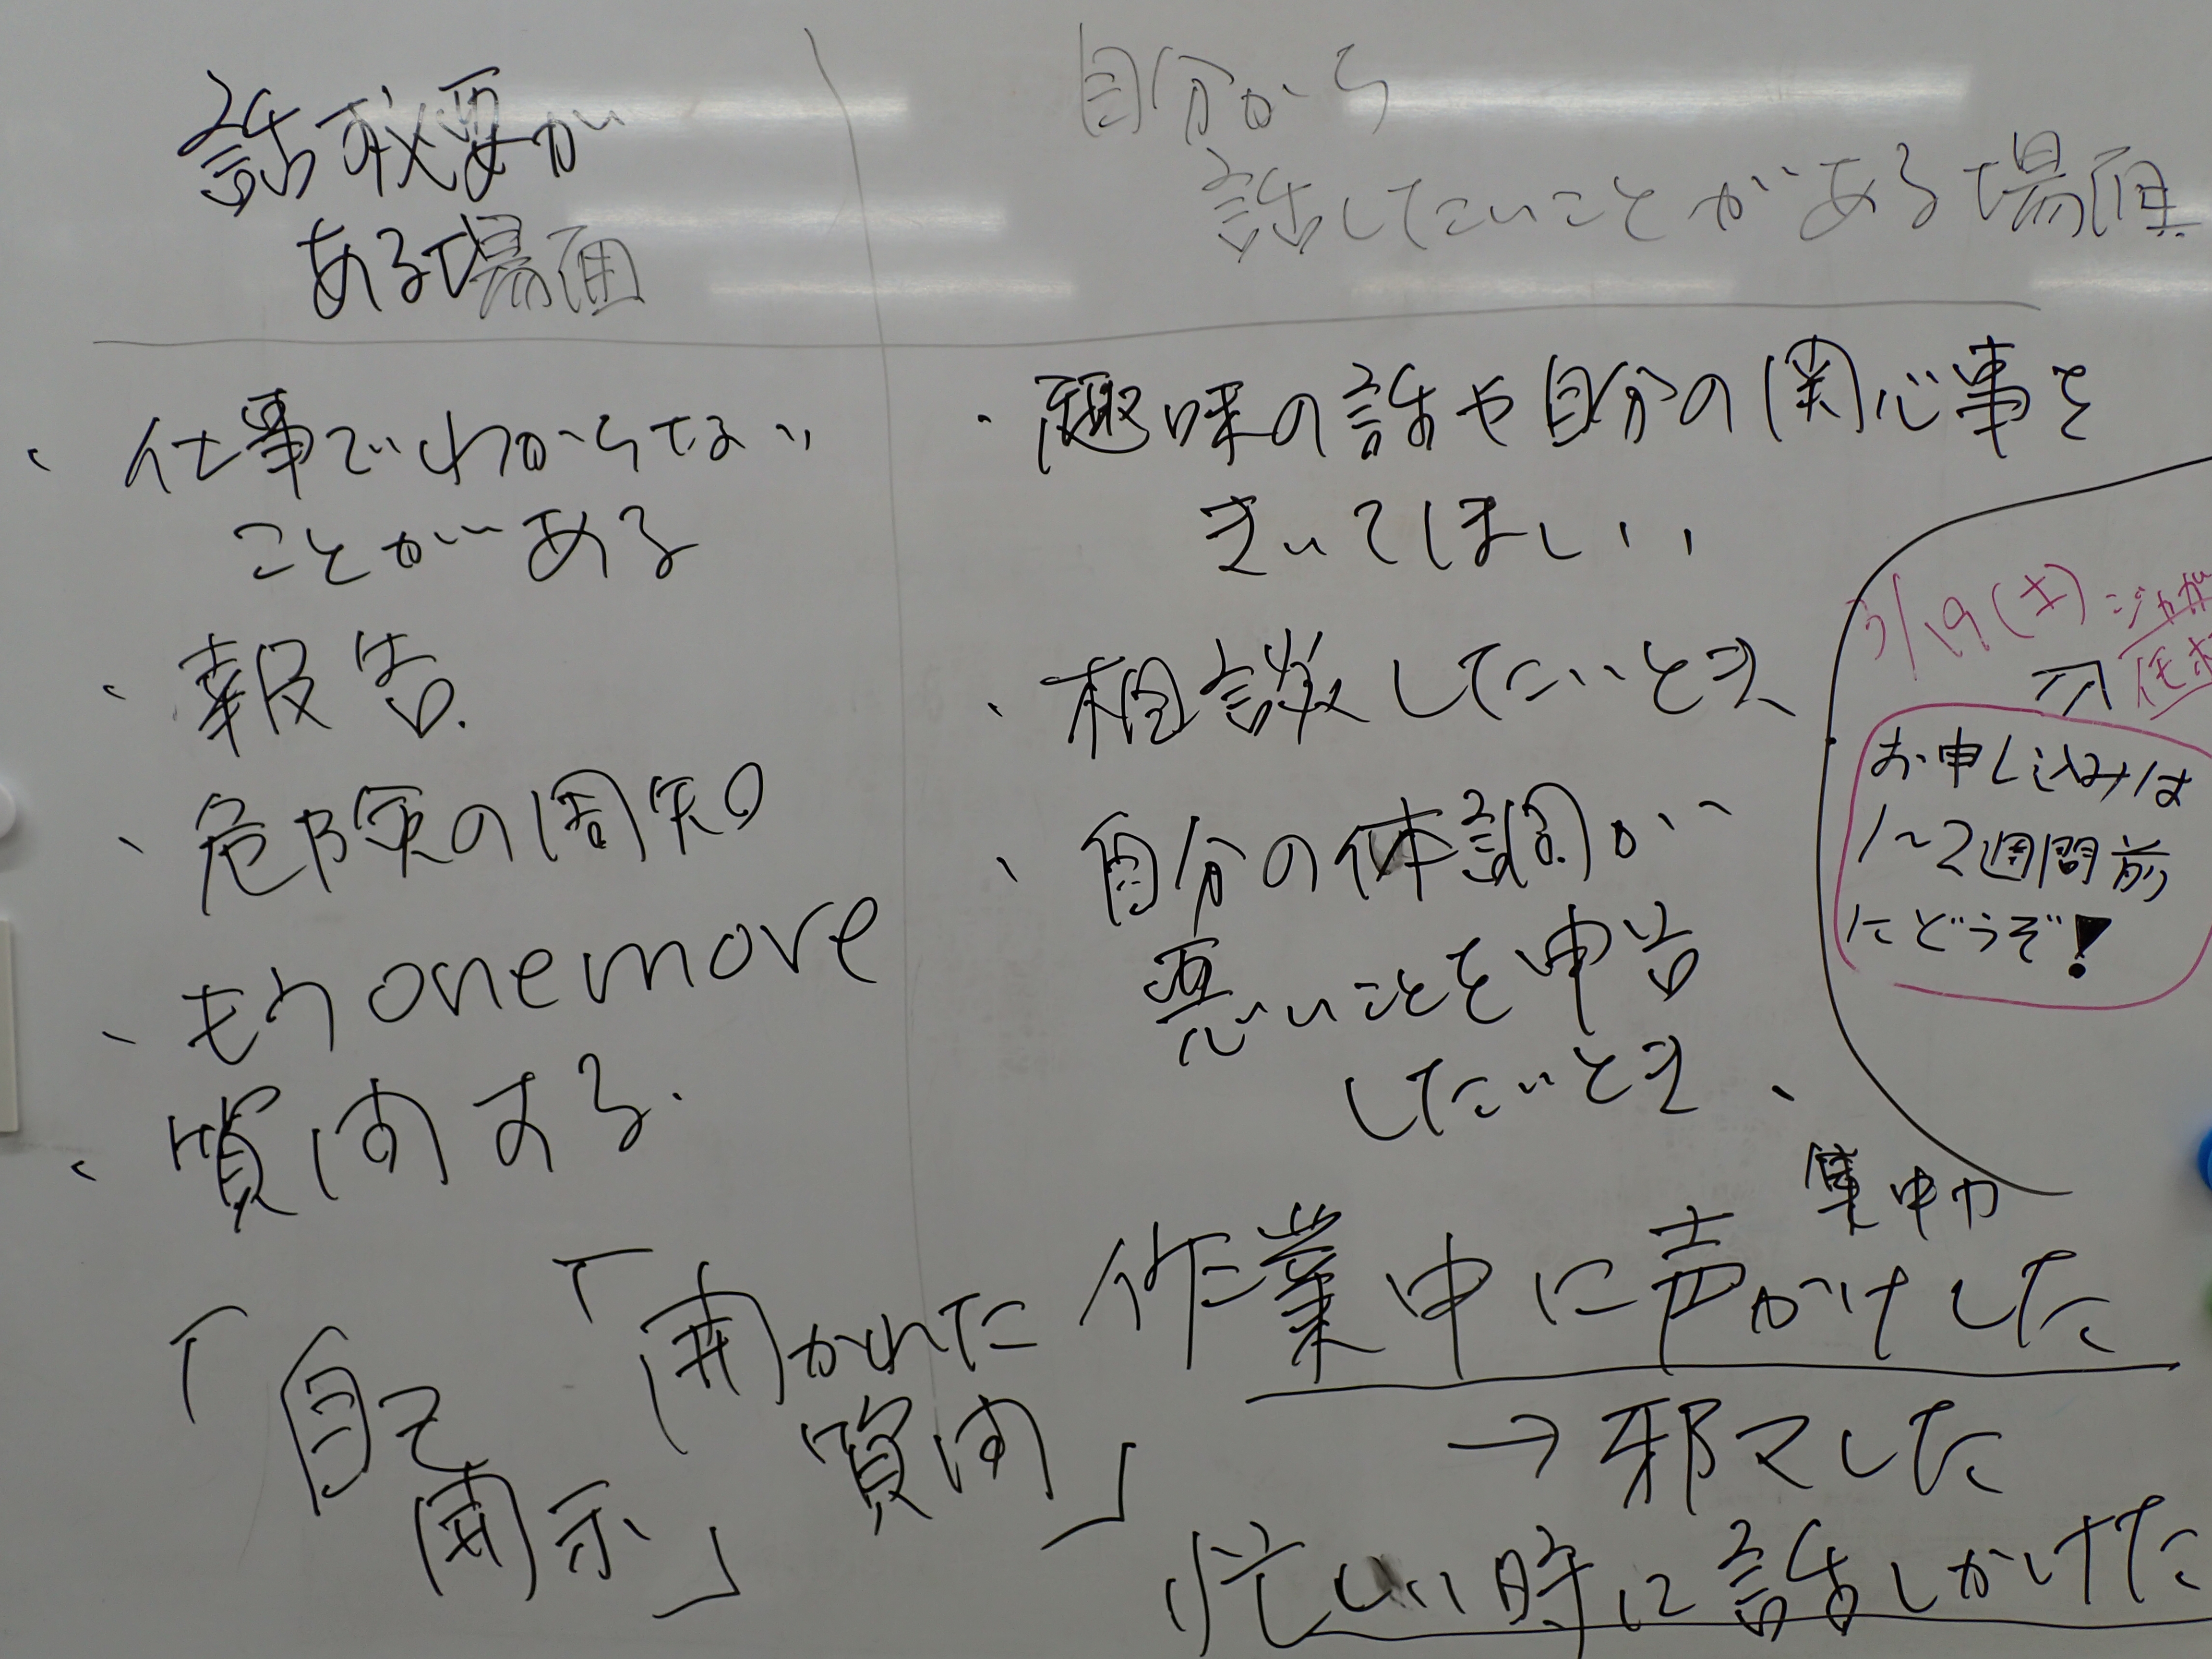 話す必要が
ある場面
・仕事でわからない
ことがある
・報告
・危険の周知
・もう one more
・質問する.
「自己
開示」
「聞かれた
質問」
自分から
話したいことがある場面
・趣味の話や自分の関心事を
きいてほしい
・相談したいとき
・自分の体調が
悪いことを申告
したいとき、
集中力
作業中に声かけした
→邪マした
忙しい時に話しかけた
3/19(土)
お申し込みは
1～2週間前
にどうぞ!